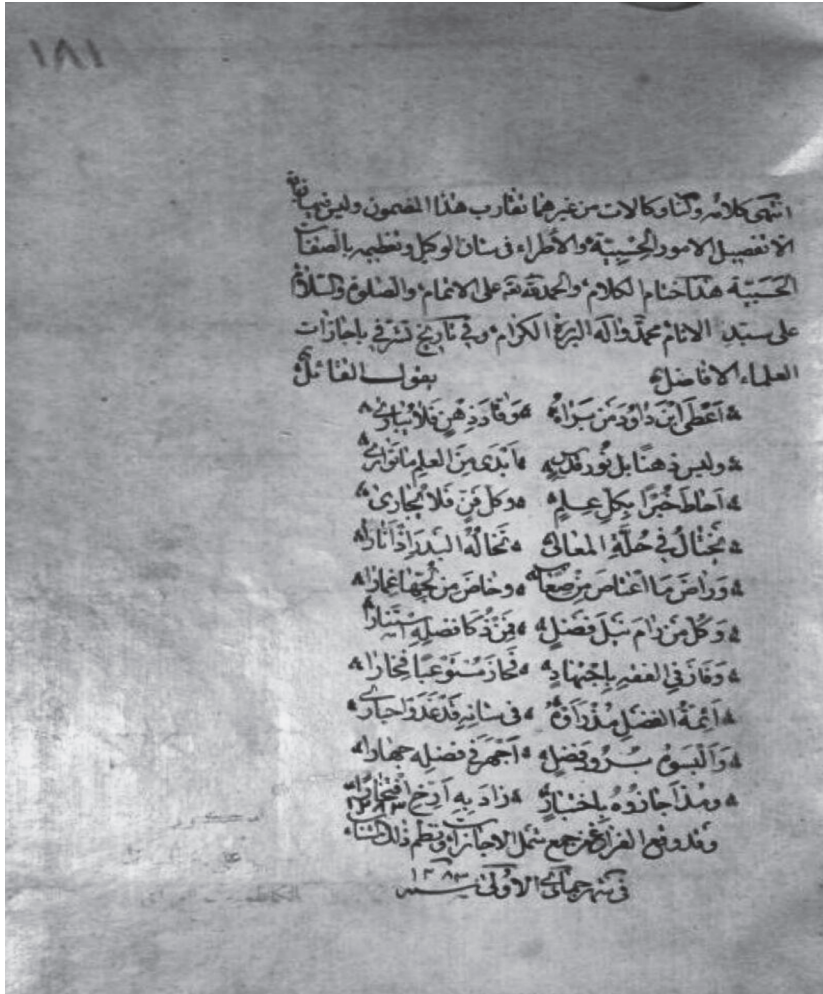 ١٨١
انتهى كلامه وكنا وكالات من غيرهما تقارب هذا المضمون وليس فيها
الا تفصيل الامور الحسبية والاطراء في شان الوكيل وتعظيمه بالصفات
الحسبية هذا ختام الكلام والحمد لله على الاتمام والصلوة والسلام
على سيد الانام محمد واله البررة الكرام وفي تاريخ تشرفي باجازات
العلماء الافاضل يقول القائل
اَعْطَى ابْنَ دَاوُدَ مَن بَرَاهُ وَقّادَ ذِهْنٍ فَلا يُبارى
وليس ذهنًا بل نُور قدسٍ اَبْدَى مِنَ العلمِ ما تَوارى
اَحاطَ خُبْرًا بِكلِ عِلمٍ وكل فَنٍّ فَلا يُجارى
يَخْتالُ في حُلَّةِ المعالي تَخالُهُ البَدرَ اِذْ اَنارا
وَراضَ ما اعْتاصَ مِنْ صِعابٍ وخاضَ مِن لُجِّها غِمارا
وَكل مَن رامَ نَيلَ فَضلٍ فَمِنْ ذُكا فضلِهِ اسْتَنارا
وَفازَ في الفقهِ بِاجْتِهادٍ فَحازَ مُسْتَوْعِبًا فِخارا
اَئِمةُ الفَضْلِ مُذْ رَاَوْهُ في شانِهِ قَدْ غَدَوا حيارى
وَاليَومُ بُرُو فضلٍ اَجْهَرَ في فضلِهِ جِهارا
ومُذْ اَجازوهُ بِاخْتِبارٍ زادَ بِهِ اَرِّخِ افْتِخارا
١٢٨٣
وقد وقع الفراغ من جمع شمل الاجازات ونظم ذلك الشتات
في شهر جمادى الاولى سنة ١٢٨٣